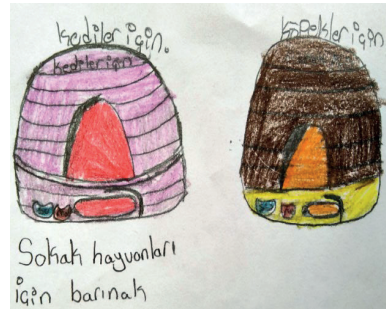 kediler için.
kediler için
köpekler için
Sokak hayvanları
için barınak